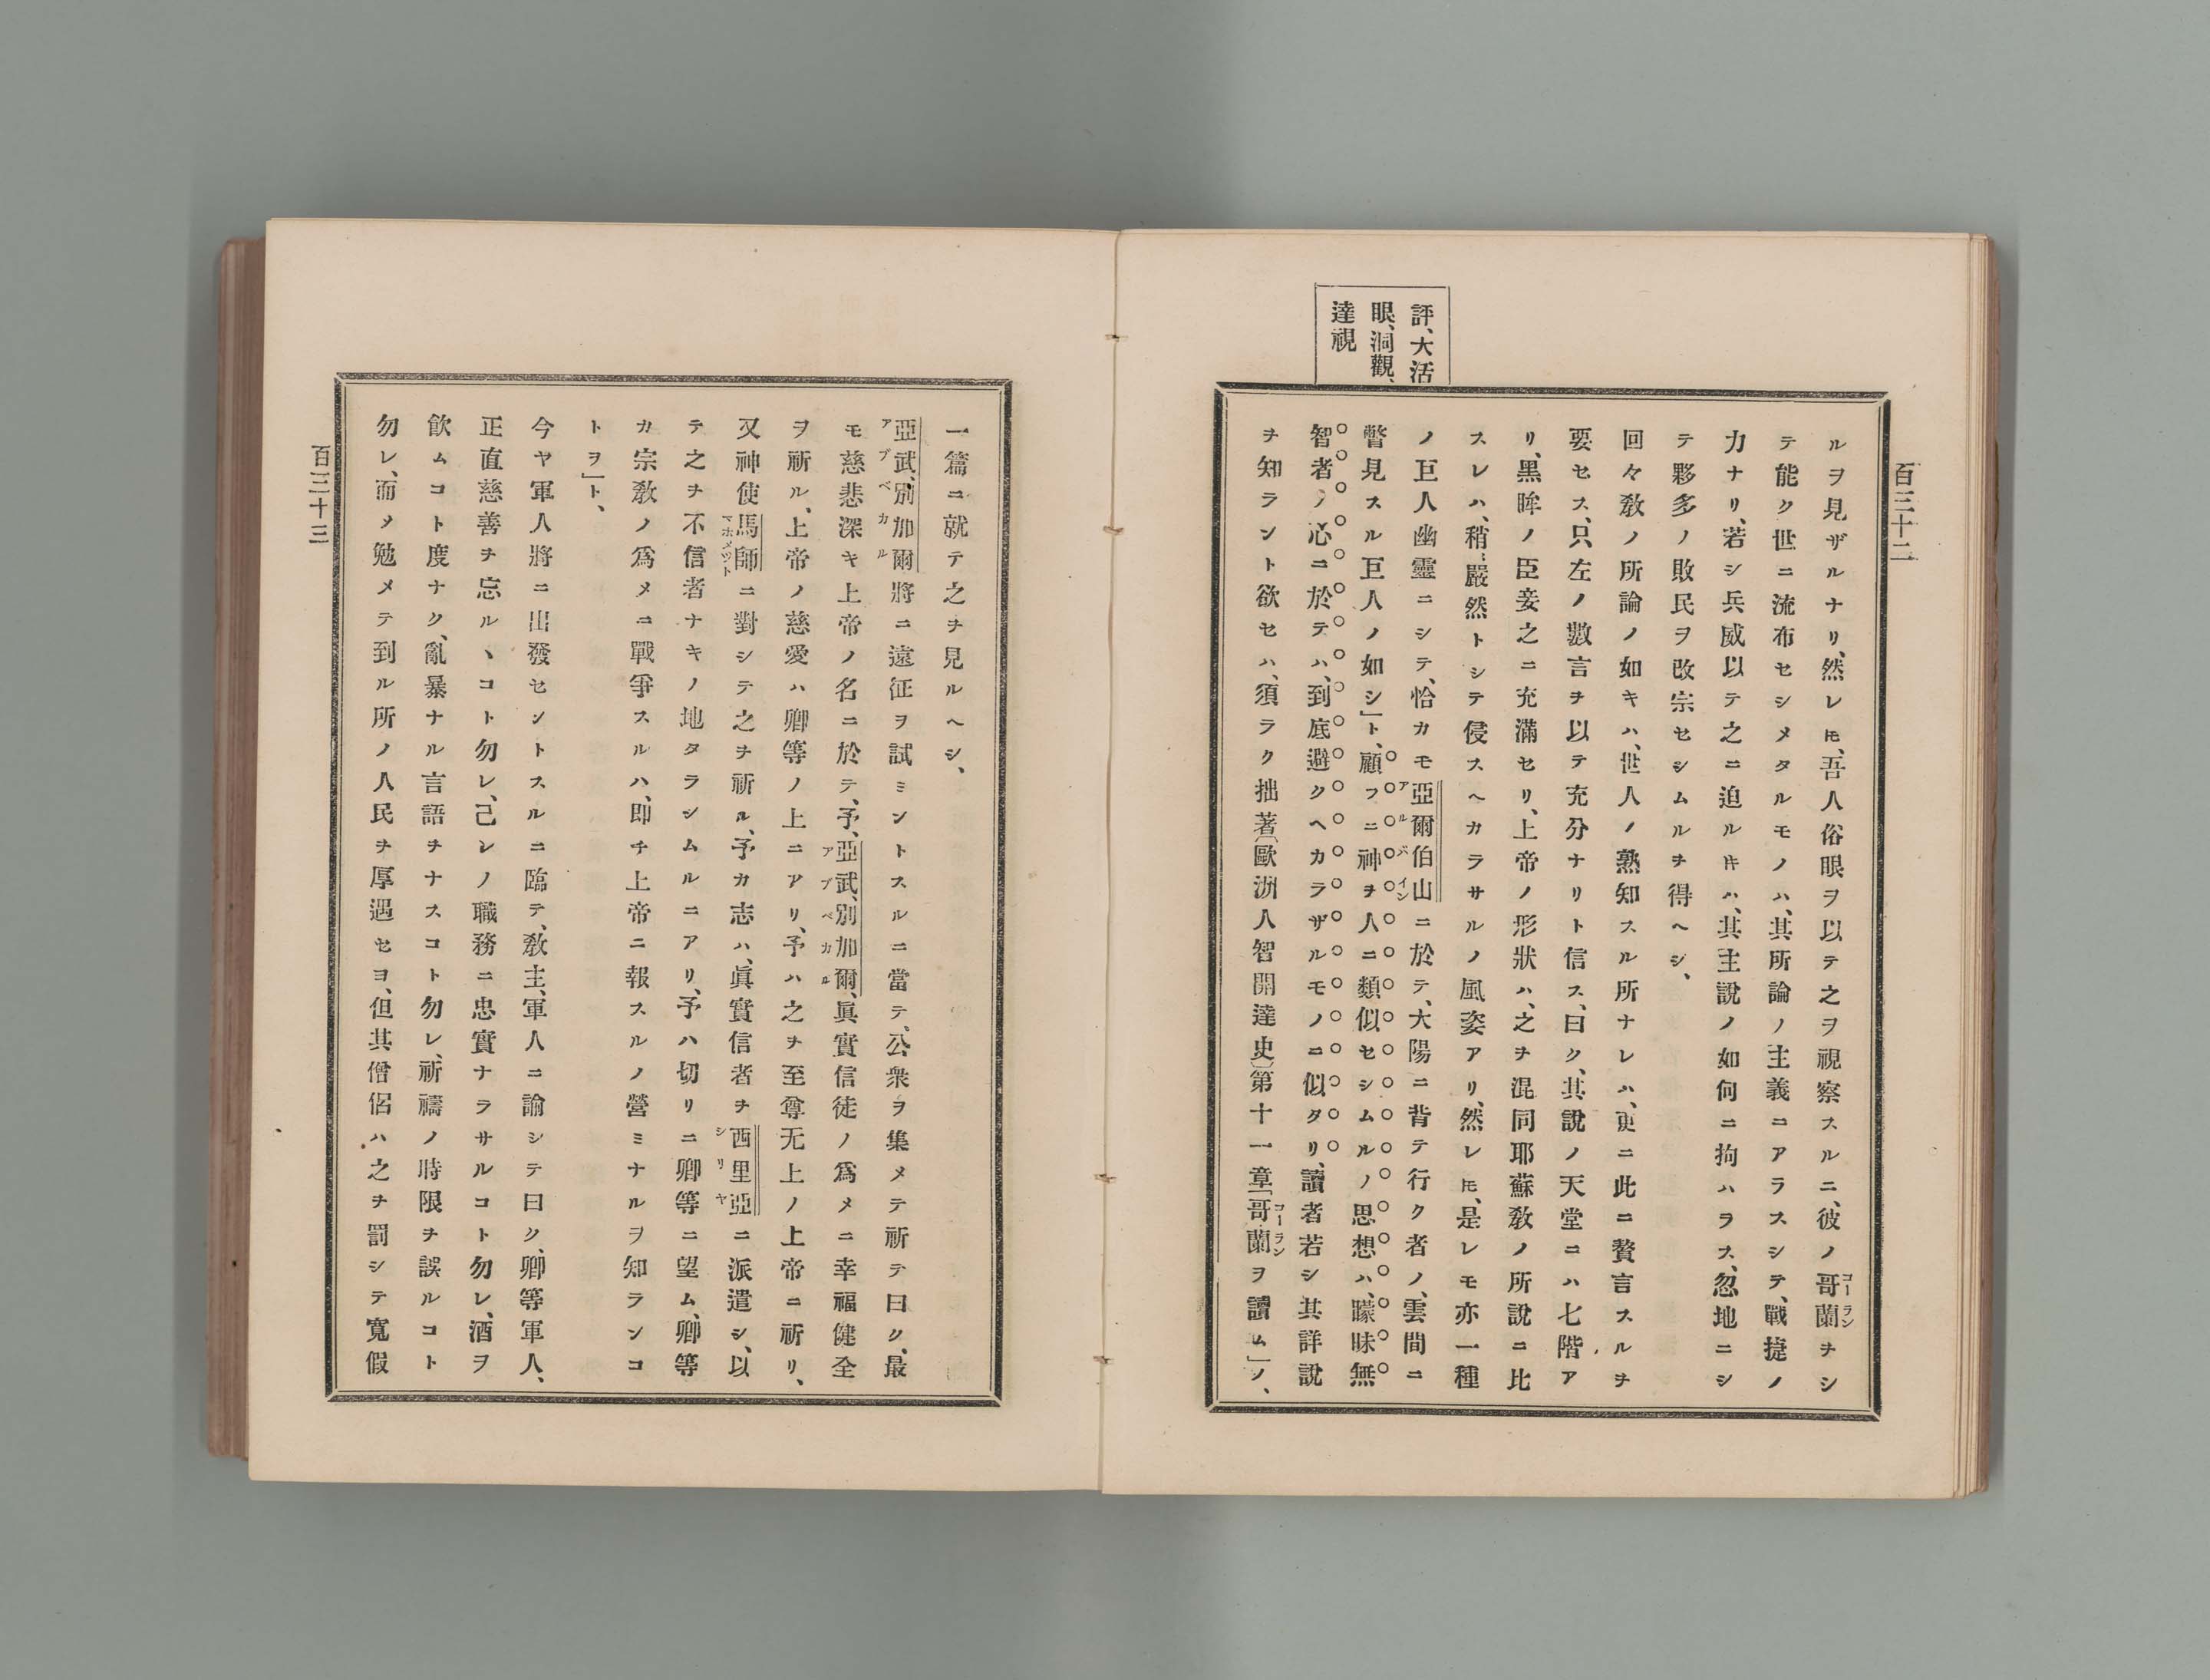 百三十二
評、大活
眼、洞觀、
達視
ルヲ見ザルナリ、然レ𪜈、吾人俗眼ヲ以テ之ヲ視察スルニ、彼ノ哥蘭ヲシ
コーラン
テ能ク世ニ流布セシメタルモノハ、其所論ノ主義ニアラスシテ、戰捷ノ
力ナリ、若シ兵威以テ之ニ迫ルキハ、其主說ノ如何ニ拘ハラス、忽地ニシ
テ夥多ノ敗民ヲ改宗セシムルヲ得ヘシ、
回々敎ノ所論ノ如キハ、世人ノ熟知スル所ナレハ、更ニ此ニ贅言スルヲ
要セス、只左ノ數言ヲ以テ充分ナリト信ス、曰ク、其說ノ天堂ニハ七階ア
リ、黑眸ノ臣妾之ニ充滿セリ、上帝ノ形狀ハ、之ヲ混同耶蘇敎ノ所說ニ比
スレハ、稍嚴然トシテ侵スヘカラサルノ風姿アリ、然レ𪜈、是レモ亦一種
ノ巨人幽靈ニシテ、恰カモ亞爾伯山ニ於テ、大陽ニ背テ行ク者ノ、雲間ニ
アルバイン
瞥見スル巨人ノ如シ」ト、顧フニ神ヲ人ニ類似セシムルノ思想ハ、矇昧無
智者ノ心ニ於テハ、到底避クヘカラザルモノニ似タリ、讀者若シ其詳說
ヲ知ラント欲セハ、須ラク拙著〔歐洲人智開達史〕第十一章「哥蘭ヲ讀ム」ノ、
コーラン
一篇ニ就テ之ヲ見ルヘシ、
亞武、別加爾將ニ遠征ヲ試ミントスルニ當テ、公衆ヲ集メテ祈テ曰ク、最
アブベカル
モ慈悲深キ上帝ノ名ニ於テ、予、亞武、別加爾、眞實信徒ノ爲メニ幸福健全
アブベカル
ヲ祈ル、上帝ノ慈愛ハ卿等ノ上ニアリ、予ハ之ヲ至尊无上ノ上帝ニ祈リ、
又神使馬師ニ對シテ之ヲ祈ル、予カ志ハ、眞實信者ヲ西里亞ニ派遣シ、以
マホメツト
シリヤ
テ之ヲ不信者ナキノ地タラシムルニアリ、予ハ切リニ卿等ニ望ム、卿等
カ宗敎ノ爲メニ戰爭スルハ、即チ上帝ニ報スルノ營ミナルヲ知ランコ
トヲ」ト、
今ヤ軍人將ニ出發セントスルニ臨テ、敎主、軍人ニ論シテ曰ク、卿等軍人、
正直慈善ヲ忘ルヽコト勿レ、己レノ職務ニ忠實ナラサルコト勿レ、酒ヲ
飮ムコト度ナク、亂暴ナル言語ヲナスコト勿レ、祈禱ノ時限ヲ誤ルコト
勿レ、而メ勉メテ到ル所ノ人民ヲ厚遇セヨ、但其僧侶ハ之ヲ罰シテ寬假
百三十三